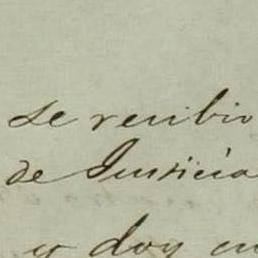 se recibio
de Justicia
y doy en